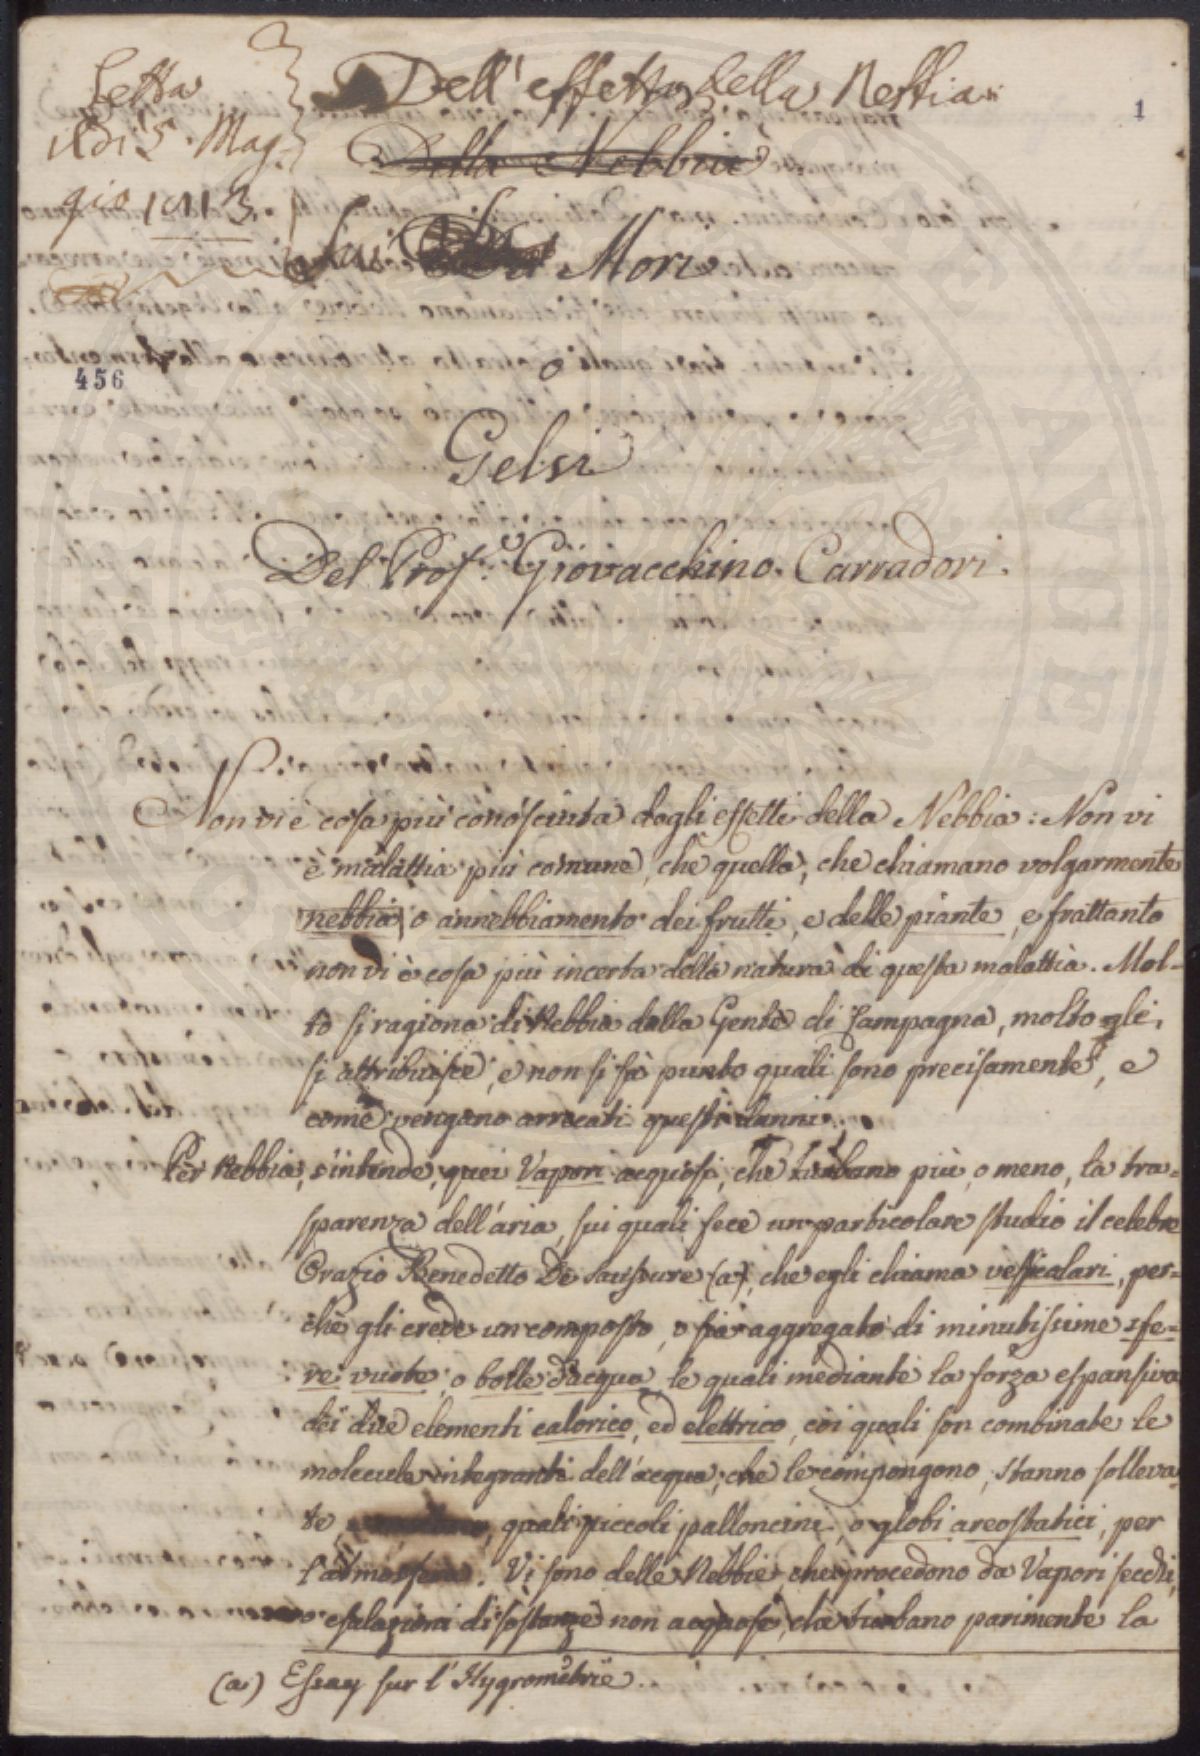 Letta
il dì 5. Mag-
gio 1813
Dell'effetto della Nebbia
1
Della Nebbia
Sui Mori
o
456
Gelsi
Del Prof.e Giovacchino Carradori.
Non vi è cosa più conosciuta degli effetti della Nebbia: Non vi
è malattia più comune, che quella, che chiamano volgarmente
nebbia, o annebbiamento dei frutti, e delle piante, e frattanto
non vi è cosa più incerta della natura di questa malattia. Mol-
to si ragiona di Nebbia dalla Gente di Campagna, molto gli
si attribuisce, e non si sà punto quali sono precisamente, e
come vengano arrecati questi danni.
Per Nebbia, s'intende, quei Vapori acquosi, che turbano più, o meno, la tra-
sparenza dell'aria, sui quali fece un particolare studio il celebre
Orazio Benedetto De Saussure (a), che egli chiama vessicolari, per-
chè gli crede un composto, o sia aggregato di minutissime sfe-
re vuote, o bolle d'acqua, le quali mediante la forza espansiva
dei due elementi calorico, ed elettrico, coi quali son combinate le
molecule integranti dell'acqua, che le compongono, stanno solleva-
te, quali piccoli palloncini, o globi areostatici, per
l'atmosfera. Vi sono delle Nebbie, che procedono da Vapori secchi,
o esalazioni di sostanze non acquose, che turbano parimente la
(a) Essay sur l'Hygrométrie.